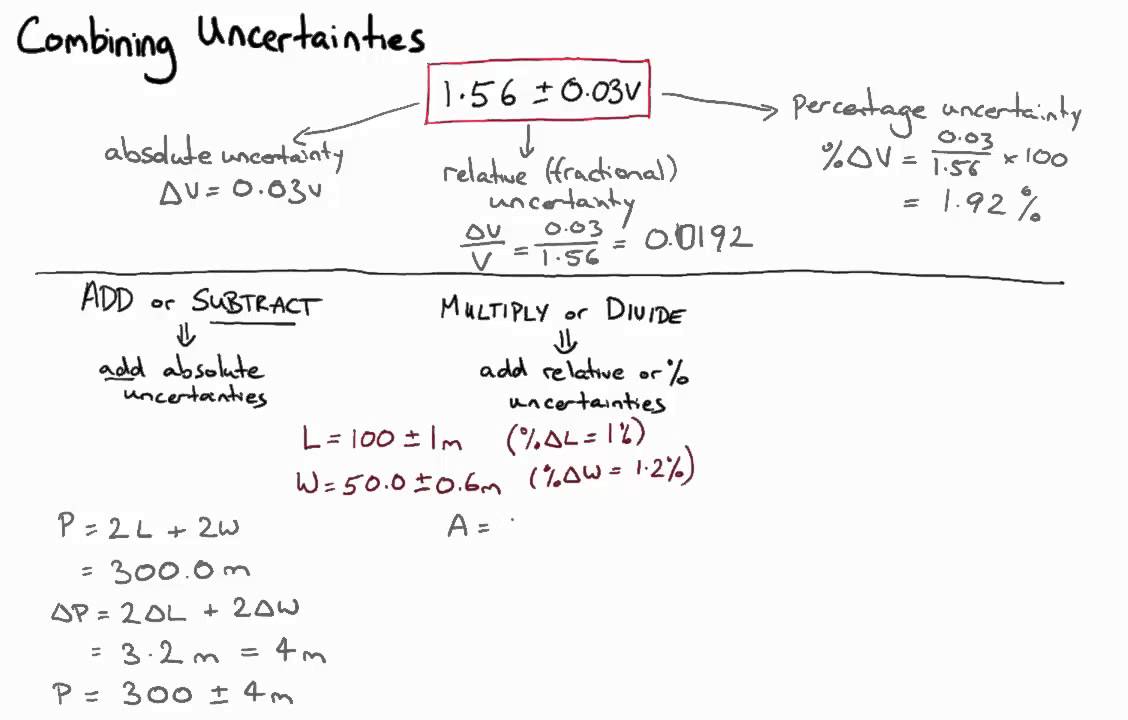 Combining Uncertainties
1.56 ± 0.03V
absolute uncertainty
ΔV = 0.03V
relative (fractional)
uncertanty
ΔV/V = 0.03/1.56 = 0.0192
percentage uncertainty
%ΔV = 0.03/1.56 × 100
= 1.92%
ADD or SUBTRACT
⇓
add absolute
uncertainties
MULTIPLY or DIVIDE
⇓
add relative or %
uncertainties
L = 100 ± 1m (%ΔL = 1%)
W = 50.0 ± 0.6m (%ΔW = 1.2%)
P = 2L + 2W
= 300.0m
ΔP = 2ΔL + 2ΔW
= 3.2m = 4m
P = 300 ± 4m
A =